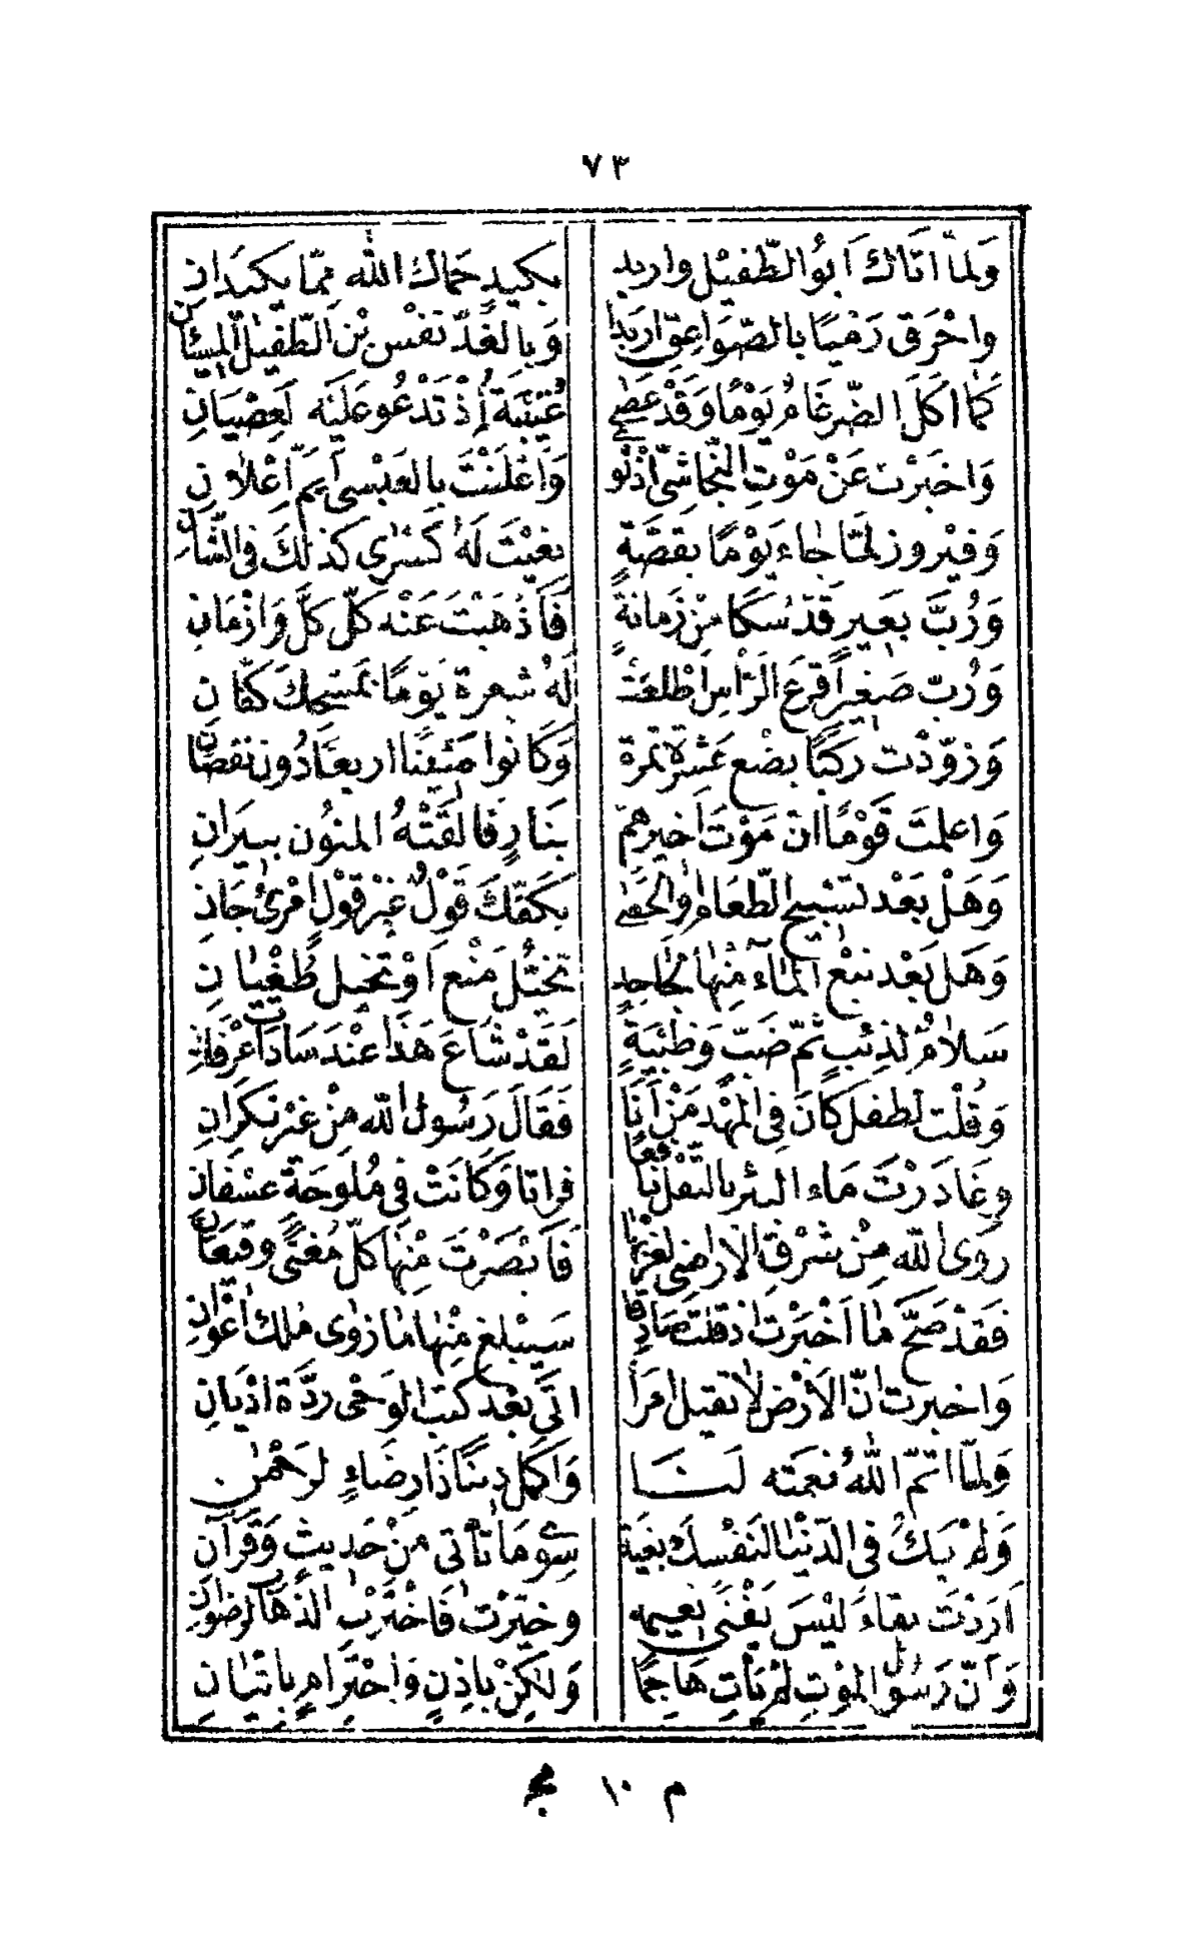 ٧٣
وَلمّا اتَاكَ اَبُو الطّفيْل واربد بكيدٍ حَماكَ اللّٰه مِمّا يكيدَانِ
واحْرَق رَمْيًا بالصّوَاعِقِ اربدا وَبالغدّ نفْس بْن الطّفيْل المسِئانِ
كَما اكَلَ الضّرغَامُ يَوْمًا وَقدْ عَصٰى عُتيْبَةُ إذْ تدْعُو عَليَه لَعِصْيَانِ
وَاخبَرْت عَنْ مَوْتِ النّجاشِىّ اذْ وَاَعْلَنْتَ بالعَبْسى اَيّمَ اِعْلانِ
وَفيْروز لمّا جٰاءَ يَوْمًا بقصّةٍ نعيْتَ لَهُ كسْرٰى كذٰلكَ فى الشّانِ
وَرُبَّ بَعيرٍ قدْ شكَا مِنْ زَمانةٍ فَاَذْهَبْتَ عَنْه كلّ كلَّ وَازْمَانِ
وَرُبّ صَغيرٍ اَقرَعَ الرّاْسِ اطْلعَتْ لَهُ شعرة يَوْمًا بمَسْحِكَ كفّانِ
وَزوّدْتَ ركبًا بضْعَ عَشْرة تمرة وَكانوا مَئينًا اربعًا دُون نقصَانِ
وَاعلمتَ قَوْمًا انّ مَوْتَ اخيرهمْ بنَارٍ فالقَتْهُ المنوُن بنيرَانِ
وَهَلْ بَعْد تسْبيح الطّعَامِ وَالحَصٰى بكَفّكَ قَوْلٌ غيْر قوْلِ امْرئٍ جَانِ
وَهَل بَعْد نبْعِ المٰاءَ مِنْهٰا لجاحِدٍ تخيّل مَنْعٍ اَوْ تخيل طُغْيٰانِ
سَلامٌ لذِئبٍ ثمّ ضبّ وَظَبْيَةٍ لَقدْ شاَعَ هَذَا عِنْد سَادَاتِ عرْفانِ
وَقلْت لطفلٍ كانَ فِى المَهْد مَنْ اَنَا فَقَالَ رَسُول اللّٰه مِنْ غيْر نكرَانِ
وغَادَرْتَ مَاء البئر بالتّفْل نَافِعًا فراتا وَكانَتْ فِى مُلوحَة عسْفانِ
زوَى اللّٰه مِنْ شرْق الاراضِى لغَرْبهَا فَاَبْصَرْتَ مِنْهَا كلّ مغنًى وقيعَانِ
فَقدْ صَحَّ مٰا اَخْبَرْت اذ قلتَ صَادِقا سَيبْلغ مِنْهٰا مٰا زوٰى مُلك اَعْوانِ
وَاخبرت انّ الاَرْضَ لاٰ تقبل امرَا اتَى بَعْد كتب الوَحْى ردَّة اذيَانِ
وَلمّا اتمّ اللّٰهُ نعمَته لَنَا وَاكمَل دينًا ذَا رِضَاءٍ لرَحْمٰن
وَلمْ يَبْكُ فى الدّنْيَا لنَفْسِكَ بغيَةٌ سِوٰى مَا تاْتى مِنْ حَديثٍ وَقرَانِ
وخيّرْتَ فَاخْترْت الذّهَاب لرضوَانِ اَرَدْتَ بقاءً ليْسَ يَفْنَى نعيمه
وَاَنّ رَسُول المَوْتِ لمْ يَاتِ هَاجمًا وَلٰكِنْ باِذِنٍ وَاحْتِرَامٍ باتْيَانِ
م ١٠ مج